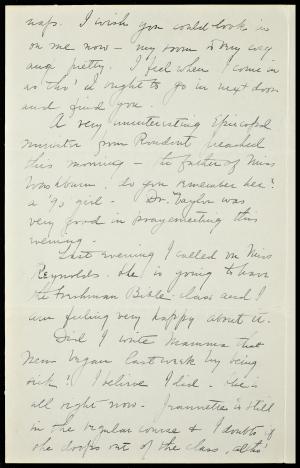 naps. I wish you could look in
on me now - my room is very cosy
and pretty. I feel when I come in
as tho' I ought to go in next door
and find you.
A very uninteresting Episcopal
minister from Rondout preached
this morning - the father of Miss
Washburn, do you remember her?
a '90 girl. Dr. Taylor was
very good in prayermeeting this
evening.
Last evening I called on Miss
Reynolds. She is going to have
the Freshman Bible-class and I
am feeling very happy about it.
Did I write Mamma that
New began last week by being
sick? I believe I did. She is
all right now. Frannetic is still
in the regular course & I doubt if
she drops out of the class, altho'